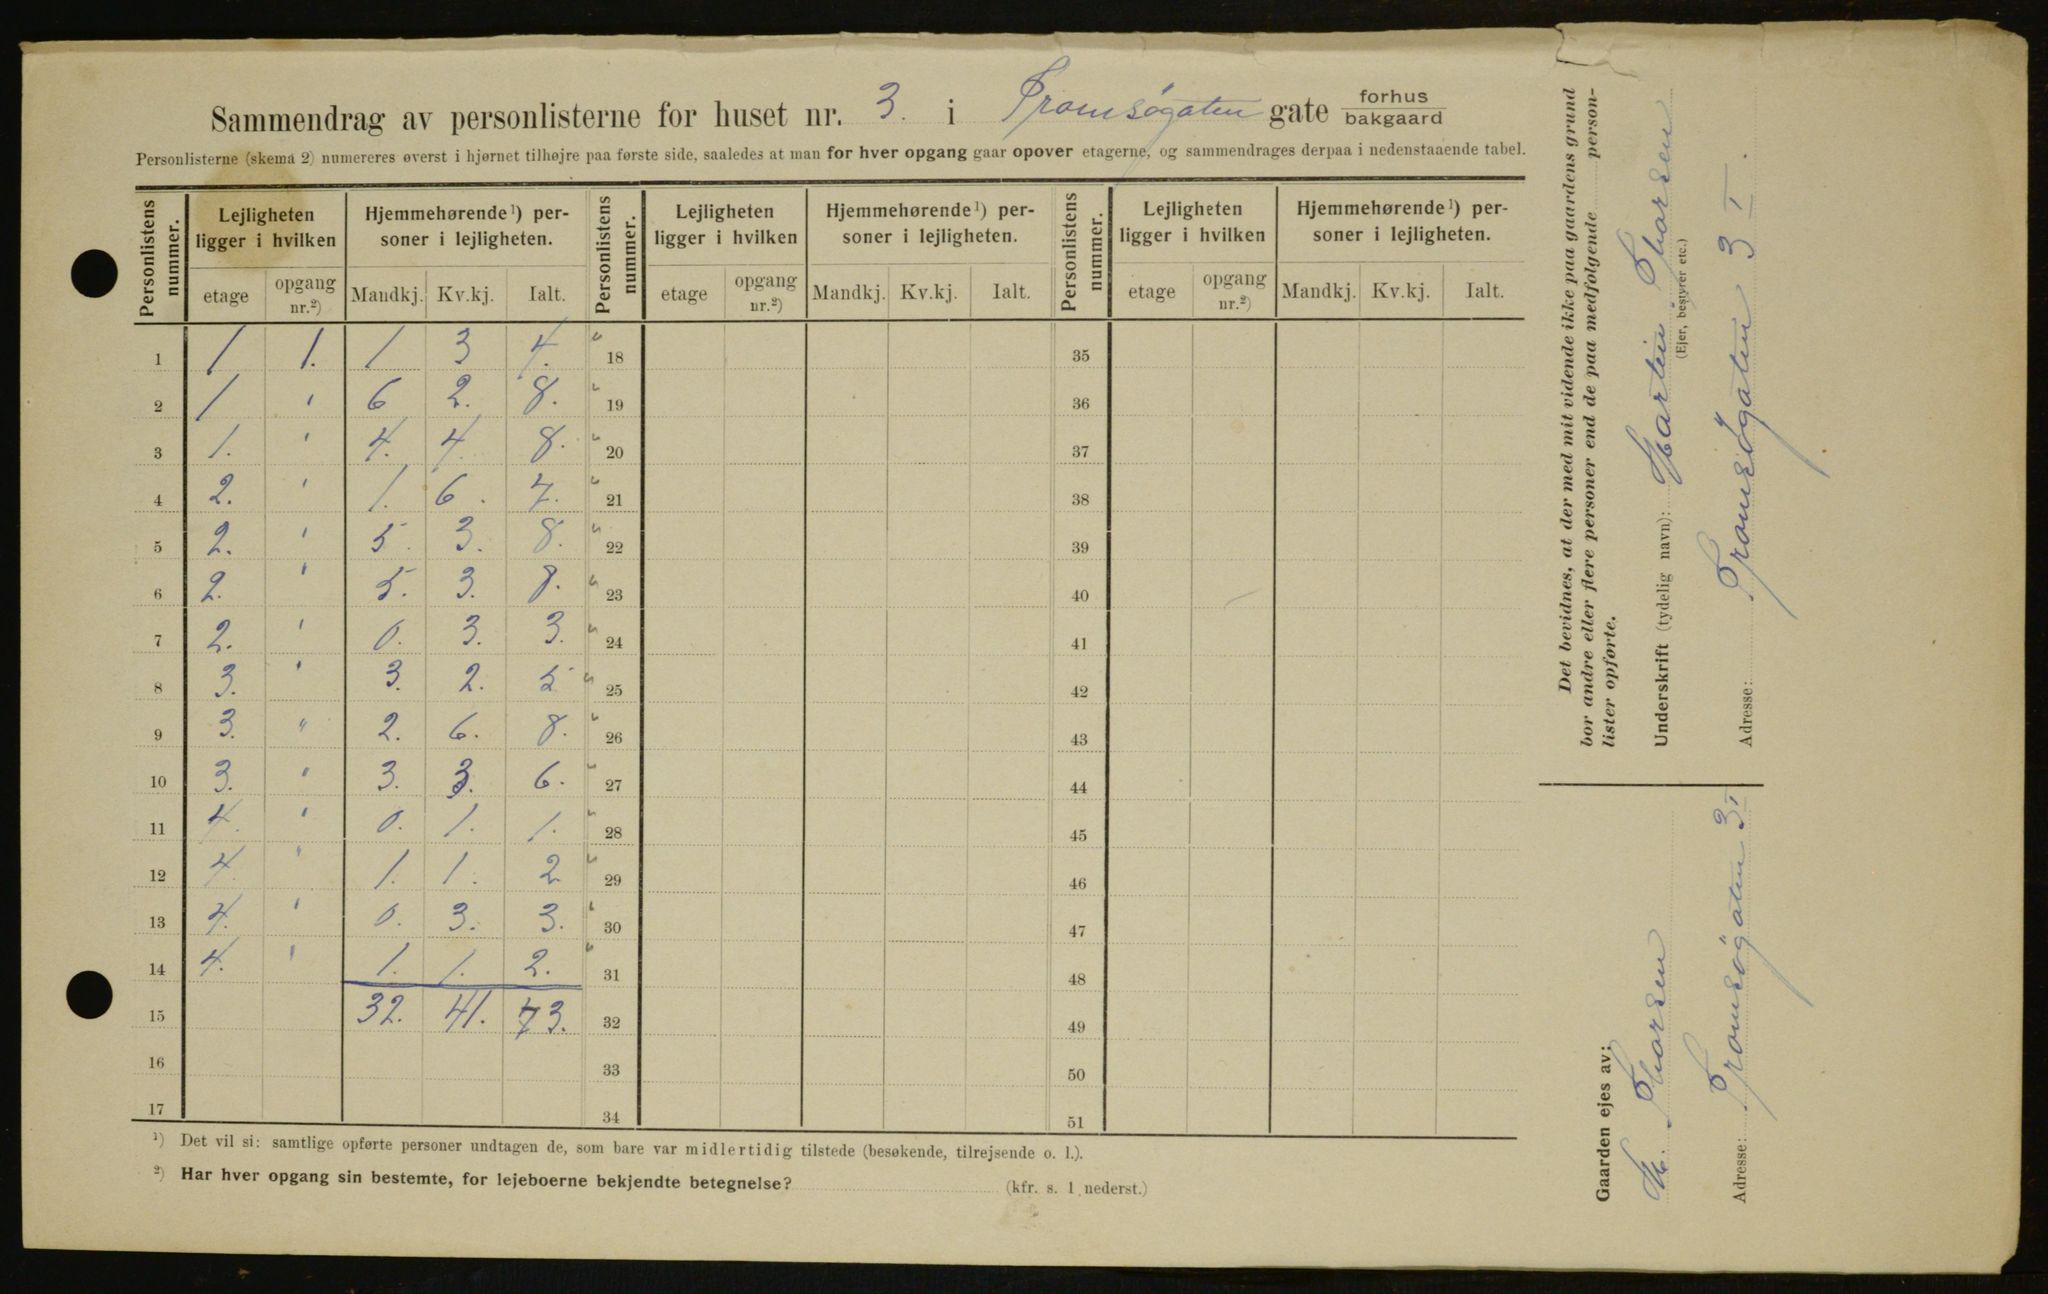 Sammendrag av personlisterne for huset nr. 3. i Tromsøgaten gate forhus bakgaard
Personlisterne (skema 2) numereres øverst i hjørnet tilhøjre paa første side, saaledes at man for hver opgang gaar opover etagerne, og sammendrages derpaa i nedenstaaende tabel.
Personlistens nummer. Lejligheten ligger i hvilken Hjemmehørende ¹) personer i lejligheten. Personlistens nummer. Lejligheten ligger i hvilken Hjemmehørende ¹) personer i lejligheten. Personlistens nummer. Lejligheten ligger i hvilken Hjemmehørende ¹) personer i lejligheten.
etage opgang nr.²) Mandkj. Kv.kj. Ialt. etage opgang nr.²) Mandkj. Kv.kj. Ialt. etage opgang nr.²) Mandkj. Kv.kj. Ialt.
1 1 1. 1 3 4. 18 35
2 1 " 6 2. 8. 19 36
3 1. " 4. 4. 8. 20 37
4 2. " 1. 6. 7. 21 38
5 2. " 5. 3. 8. 22 39
6 2. " 5. 3. 8. 23 40
7 2. " 0. 3. 3. 24 41
8 3. " 3. 2. 5 25 42
9 3. " 2. 6. 8. 26 43
10 3. " 3. 3. 6. 27 44
11 4. " 0. 1. 1. 28 45
12 4. " 1. 1. 2 29 46
13 4. " 0. 3. 3. 30 47
14 4. " 1. 1. 2. 31 48
15 32. 41. 73. 32 49
16 33 50
17 34 51
¹) Det vil si: samtlige opførte personer undtagen de, som bare var midlertidig tilstede (besøkende, tilrejsende o. l.).
²) Har hver opgang sin bestemte, for lejeboerne bekjendte betegnelse? (kfr. s. 1 nederst.)
Det bevidnes, at der med mit vidende ikke paa gaardens grund
bor andre eller flere personer end de paa medfølgende person-
lister opførte.
Underskrift (tydelig navn): Martin Thorsen
(Ejer, bestyrer etc.)
Adresse: Tromsøgaten 3 I.
Gaarden ejes av:
M. Thorsen
Adresse: Tromsøgaten 3 I